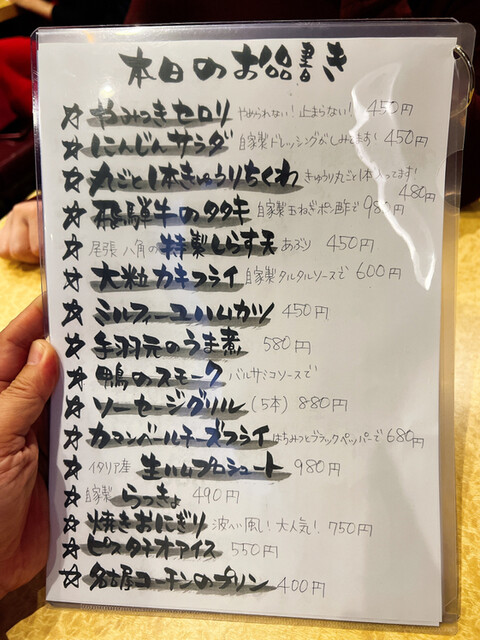 本日のお品書き
☆ やみつきセロリ やめられない！止まらない！ 450円
☆ にんじんサラダ 自家製ドレッシングがしみてます！ 450円
☆ 丸ごと1本きゅうりちくわ きゅうり丸ごと1本入ってます！ 480円
☆ 飛騨牛のタタキ 自家製玉ねぎポン酢で 980円
☆ 尾張八角の特製しらす天 あぶり 450円
☆ 大粒カキフライ 自家製タルタルソースで 600円
☆ ミルフィーユハムカツ 450円
☆ 手羽元のうま煮 580円
☆ 鴨のスモーク バルサミコソースで
☆ ソーセージグリル (5本) 880円
☆ カマンベールチーズフライ はちみつとブラックペッパーで 680円
☆ イタリア産 生ハムプロシュート 980円
☆ 自家製 らっきょ 490円
☆ 焼きおにぎり 波へい風！大人気！ 750円
☆ ピスタチオアイス 550円
☆ 名古屋コーチンのプリン 400円